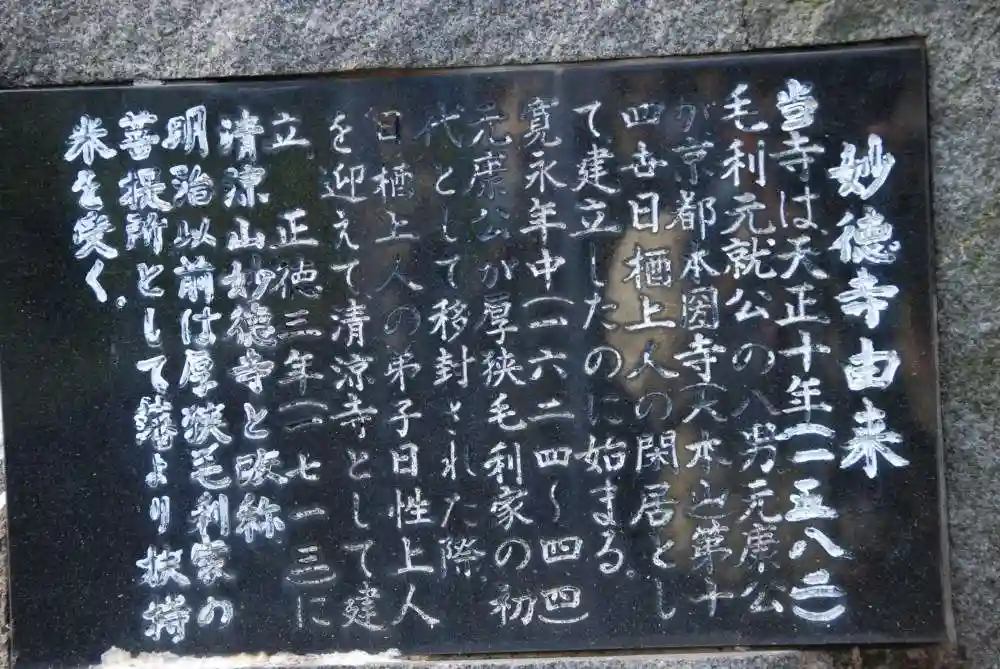 妙徳寺由来
当寺は、天正十年(一五八二)
毛利元就公の八男元康公
が京都本圀寺(大本山第十
四世日栖上人の閑居とし
て建立したのに始まる。
寛永年中(一六二四〜四四)
元康公が厚狭毛利家の初
代として移封された際、
日栖上人の弟子日性上人
を迎えて清涼寺として建
立 正徳三年(一七一三)に
清涼山妙徳寺と改称
明治以前は厚狭毛利家の
菩提所として藩より扶持
米を受く。